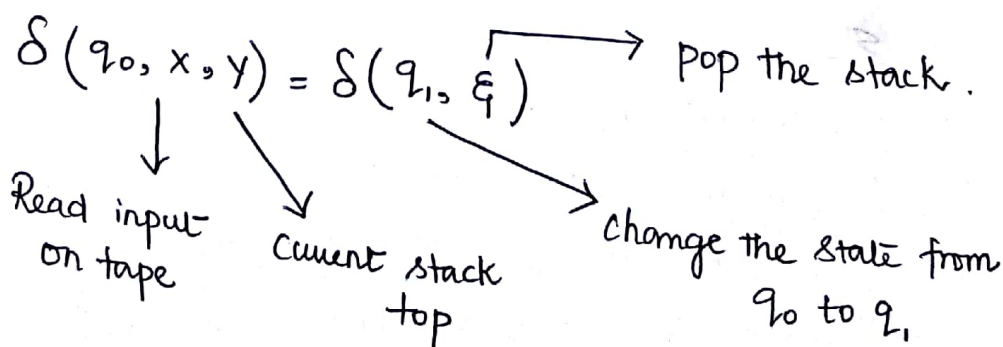 δ(q₀, x, y) = δ(q₁, ξ)
pop the stack.
Read input
on tape
current stack
top
change the state from
q₀ to q₁